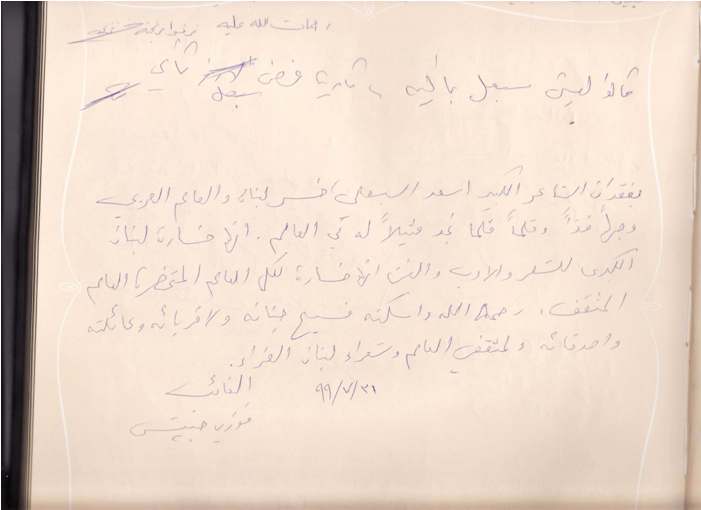 رحمات الله عليه
قالوا ليش سعيد
بفقدان الشاعر الكبير اسعد السبعلي خسر لبنان والعالم العربي
وجهاً فذاً وقلماً قلما نجد مثيلاً له في العالم. انها خسارة لبنان
الكبرى للشعر والادب والفن انها خسارة لكل العالم المتحضر والعالم
المثقف. رحمه الله واسكنه فسيح جنانه ولاقربائه وعائلته
واصدقائه ولمثقفي العالم وشعراء لبنان العزاء.
النائب ٩٩/٧/٣١
فوزي حبيش